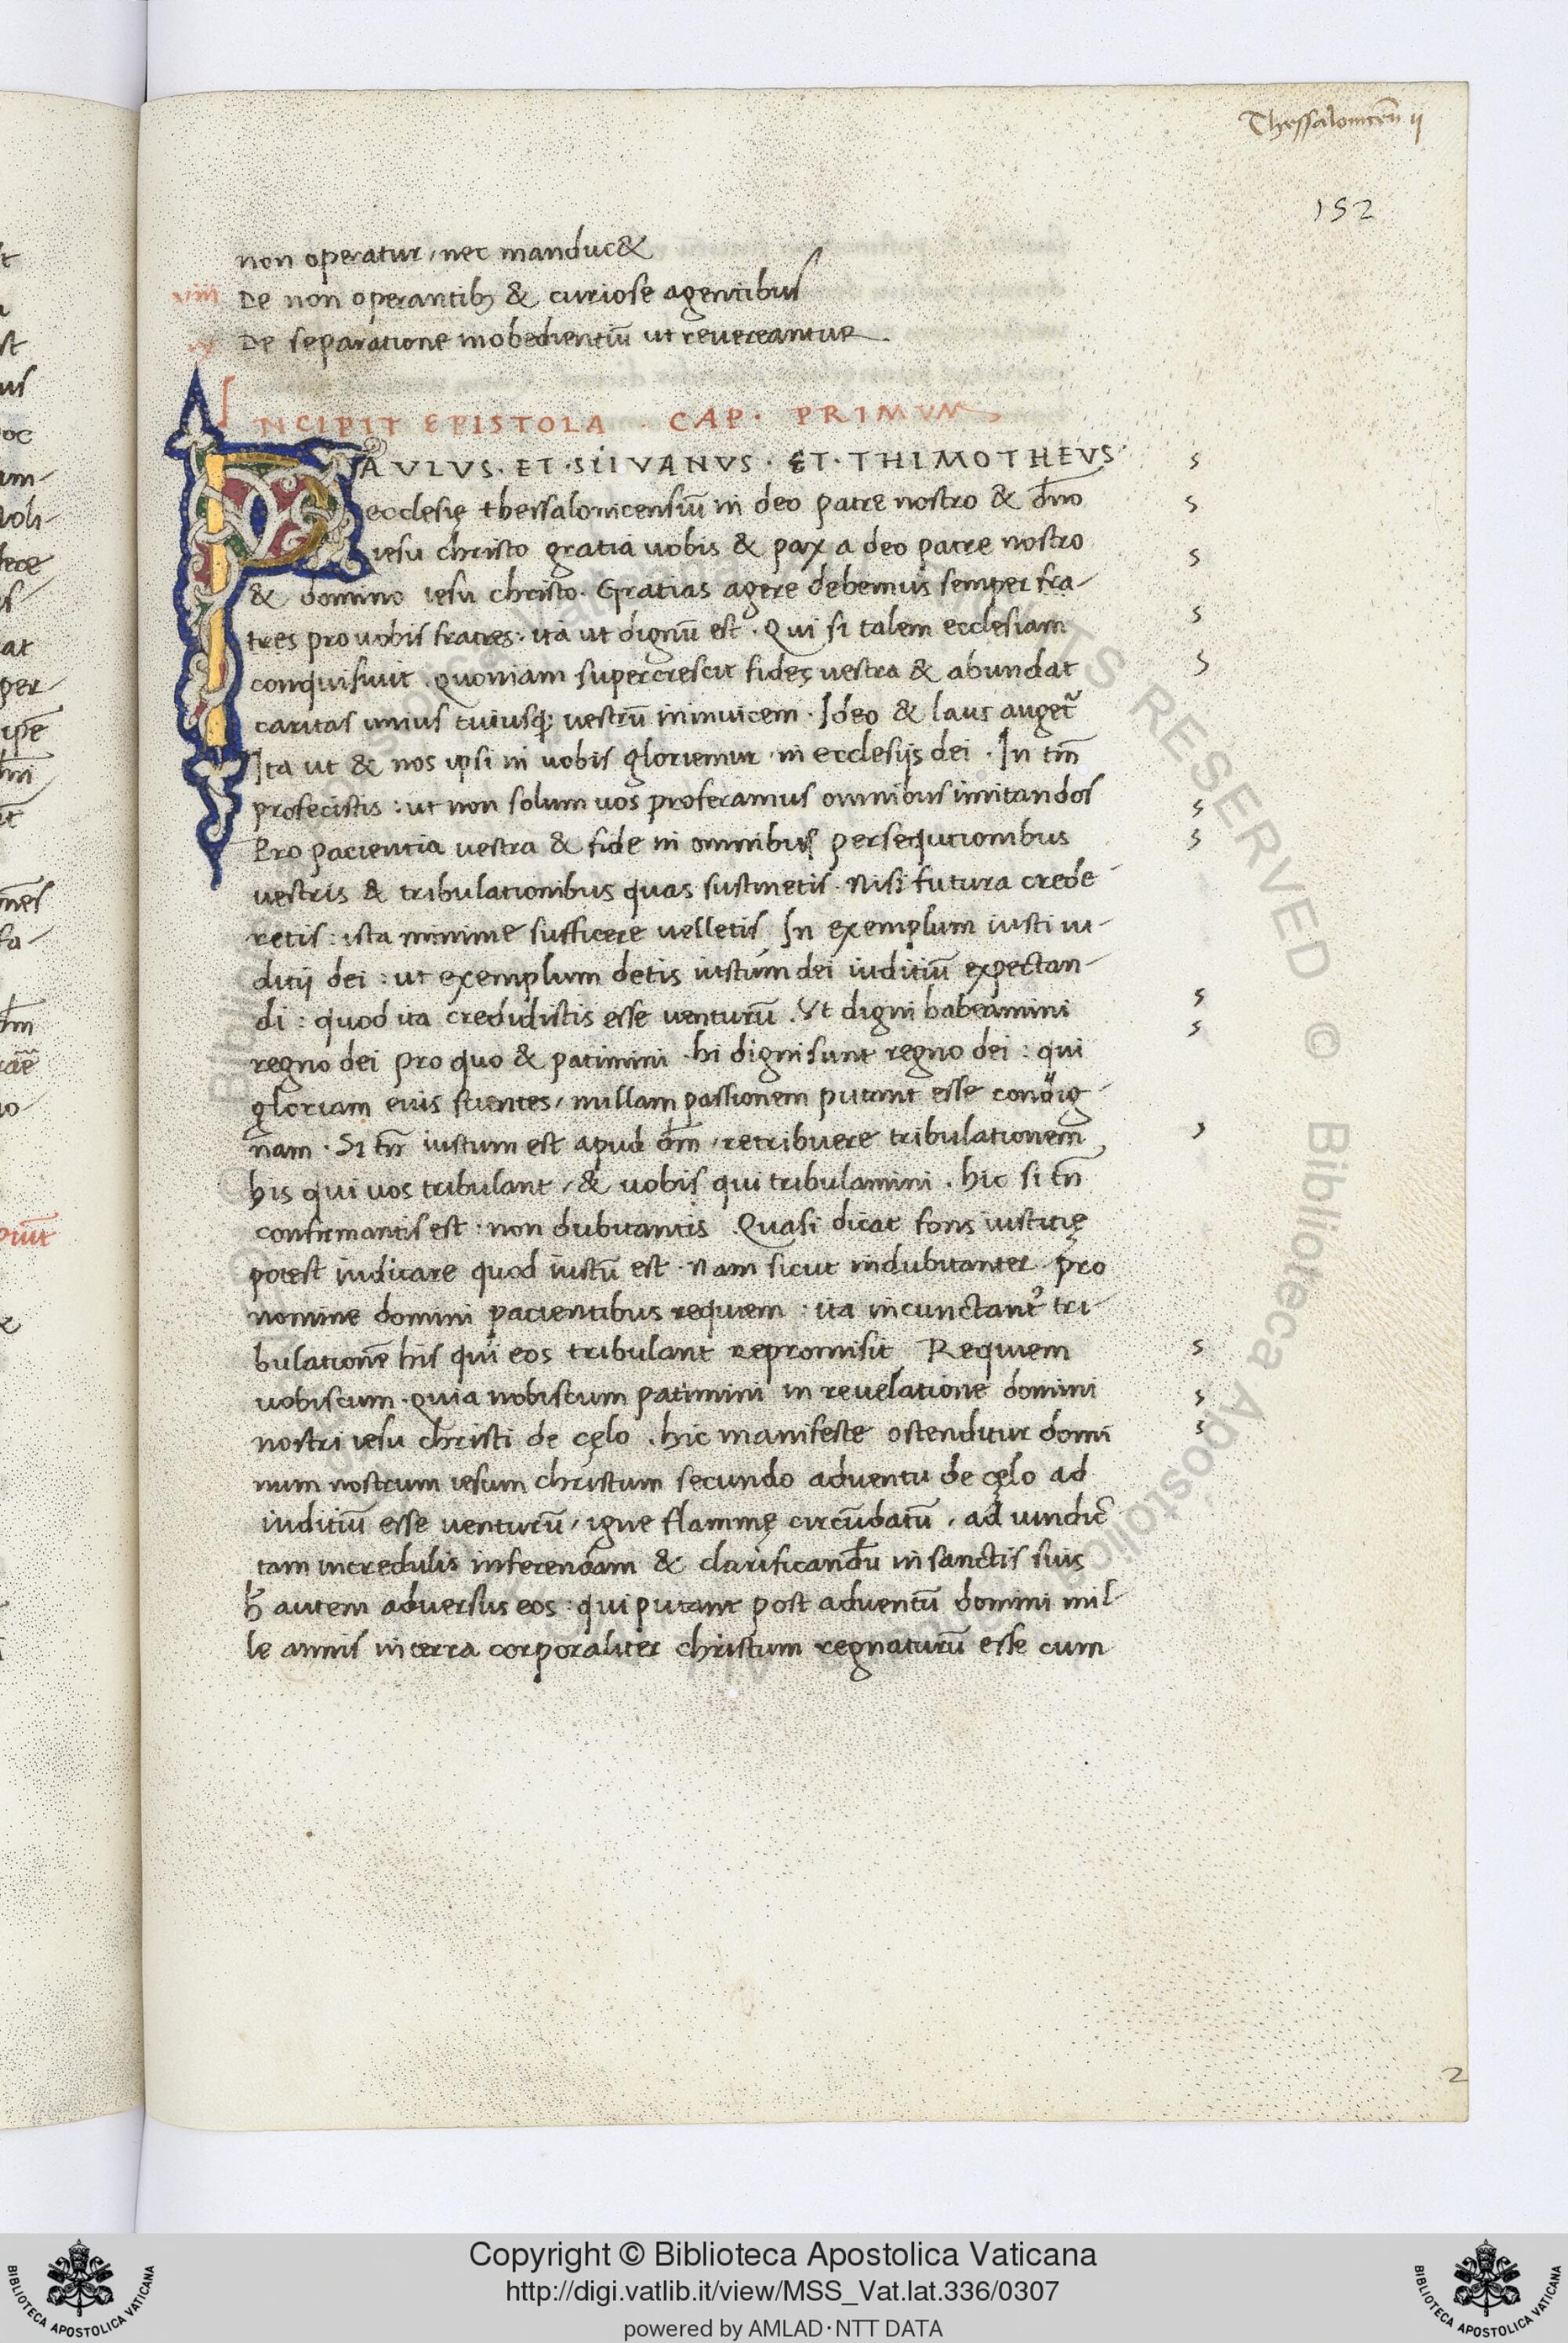 Thessalonicen̄ ij
152
non operatur, nec manduc&
viii De non operantib; & curiose agentibus
De separatione inobedientiū ut revereantur.
INCIPIT EPISTOLA . CAP . PRIMVM
PAVLVS . ET . SILVANVS . ET . THIMOTHEVS
ecclesię thessalonicensiū in deo patre nostro & dn̄o
iesu christo gratia vobis & pax a deo patre nostro
& domino iesu christo . Gratias agere debemus semper fra-
tres pro vobis fratres : ita ut dignū est . Qui si talem ecclesiam
conquisivit . quoniam supercrescit fides vestra & abundat
caritas unius cuiusq; vestrū in invicem . Ideo & laus auget᷑
Ita ut & nos ipsi in vobis gloriemur , in ecclesijs dei . In tm̄
profecistis : ut non solum vos proferamus omnibus imitandos
Pro pacientia vestra & fide in omnibus persequtionibus
vestris & tribulationibus quas sustinetis . Nisi futura crede-
retis : ista minime sufficere velletis In exemplum iusti iu-
ditij dei : ut exemplum detis iustum dei iuditiū expectan-
di : quod ita credidistis esse venturū . Ut digni habeamini
regno dei pro quo & patimini . hi digni sunt regno dei : qui
gloriam eius scientes , nullam passionem putant esse condig-
nam . Si tn̄ iustum est apud dm̄ , retribuere tribulationem
his qui vos tribulant , & vobis qui tribulamini . hic si tn̄
confirmantis est . non dubitantis . Quasi dicat fons iustitię
potest iudicare quod iustū est . Nam sicut indubitanter pro
nomine domini pacientibus requiem : ita incunctant᷑ tri-
bulationē his qui eos tribulant repromisit Requiem
vobiscum . quia nobiscum patimini in revelatione domini
nostri iesu christi de cęlo . hic manifeste ostenditur domi
num nostrum iesum christum secundo adventu de cęlo ad
iuditiū esse venturū , igne flammę circūdatū , ad vindic
tam incredulis inferendam & clarificandū in sanctis suis
h̄ autem adversus eos : qui putant post adventū domini mil-
le annis in terra corporaliter christum regnaturū esse cum
2
Copyright © Biblioteca Apostolica Vaticana
http://digi.vatlib.it/view/MSS_Vat.lat.336/0307
powered by AMLAD·NTT DATA